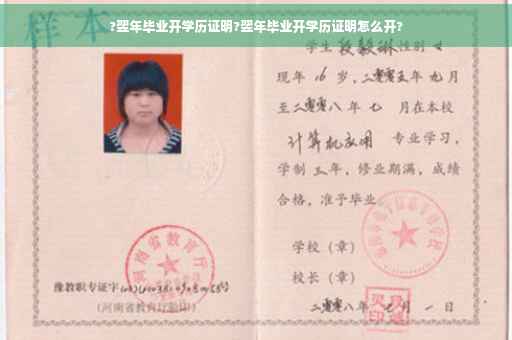 ?翌年毕业开学历证明?翌年毕业开学历证明怎么开?
样本
学生段毅琳性别女
现年16岁,二零零五年九月
至二零零八年七月在本校
计算机应用 专业学习,
学制三年,修业期满,成绩
合格,准予毕业
学校(章)
校长(章)
二零零八年七月一日
河南省教育厅
豫教职专证字
(河南省教育厅验印)